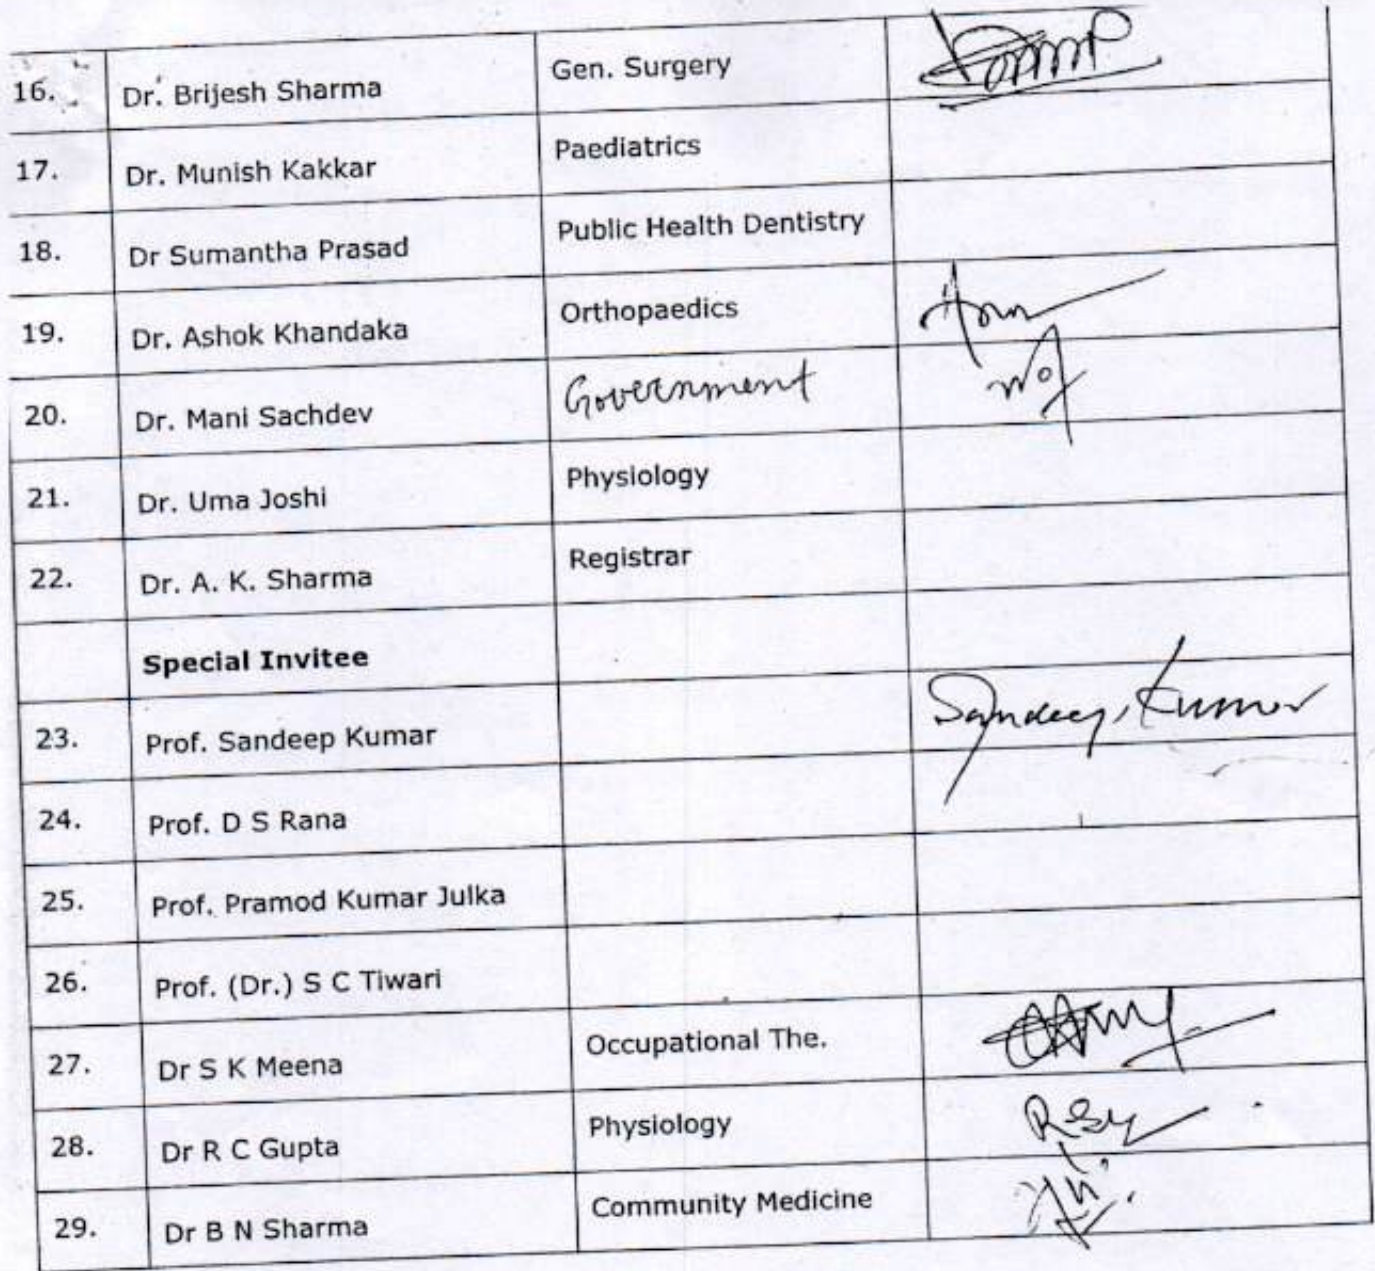 16. Dr. Brijesh Sharma Gen. Surgery
17. Dr. Munish Kakkar Paediatrics
18. Dr Sumantha Prasad Public Health Dentistry
19. Dr. Ashok Khandaka Orthopaedics
20. Dr. Mani Sachdev Government
21. Dr. Uma Joshi Physiology
22. Dr. A. K. Sharma Registrar
Special Invitee
23. Prof. Sandeep Kumar Sandeep Kumar
24. Prof. D S Rana
25. Prof. Pramod Kumar Julka
26. Prof. (Dr.) S C Tiwari
27. Dr S K Meena Occupational The.
28. Dr R C Gupta Physiology
29. Dr B N Sharma Community Medicine